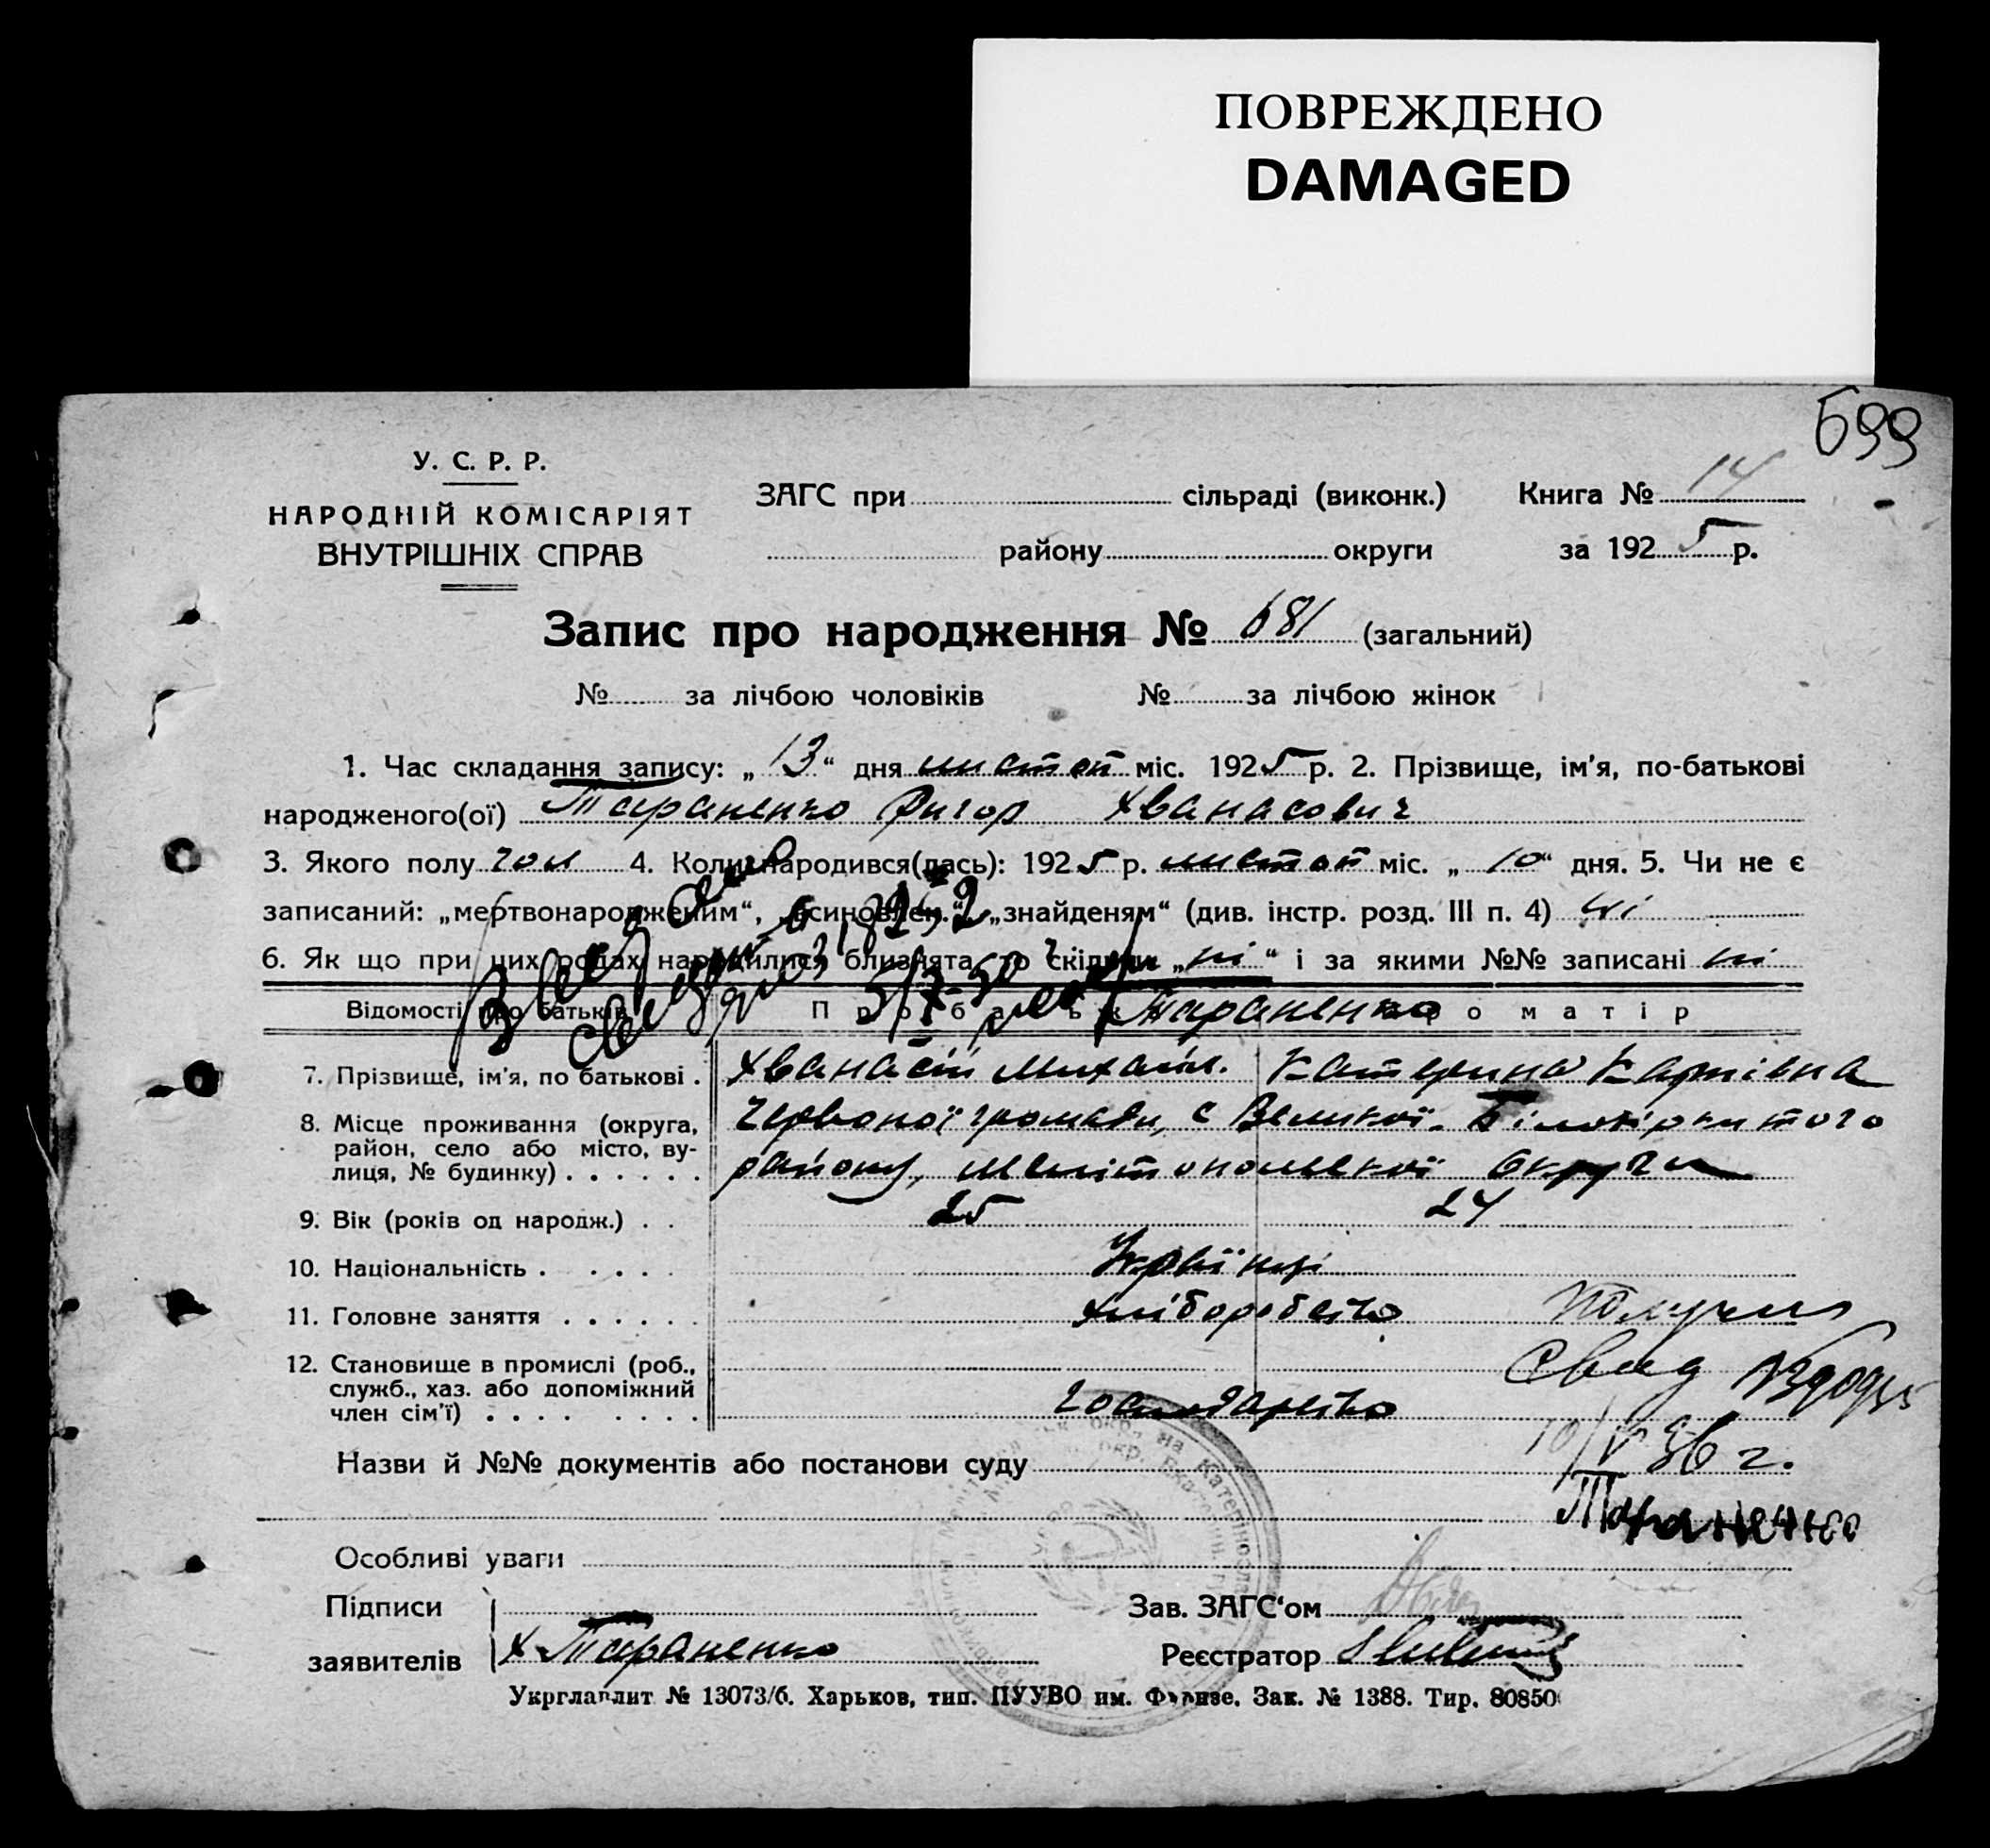 ПОВРЕЖДЕНО
DAMAGED
699
У. С. Р. Р.
НАРОДНІЙ КОМІСАРІЯТ
ВНУТРІШНІХ СПРАВ
ЗАГС при сільраді (виконк.) Книга № 14
району округи за 1925 р.
Запис про народження № 681 (загальний)
№ за лічбою чоловіків № за лічбою жінок
1. Час складання запису: „13“ дня листоп міс. 1925 р. 2. Прізвище, ім'я, по-батькові
народженого(ої) Тараненко Григор Хванасович
3. Якого полу чол 4. Коли народився(лась): 1925 р. листоп міс. „10“ дня. 5. Чи не є
записаний: „мертвонародженим“, „усиновлен.“, „знайденям“ (див. інстр. розд. III п. 4) ні
6. Як що при цих родах народилися близнята, то скільки „ні“ і за якими №№ записані ні
Відомості про батьків Про батька Тараненко Про матір
7. Прізвище, ім'я, по батькові . Хванасій Михайл. Катерина Карпівна
8. Місце проживання (округа, район, село або місто, вулиця, № будинку) . . . . . . Червоної громади, с Великої. Білозірського
району, Мелітопольскої Округи
9. Вік (років од народж.) . . 25 24
10. Національність . . . . . Українці
11. Головне заняття . . . . . . хліборобство Получил
12. Становище в промислі (роб., служб., хаз. або допоміжний член сім'ї) . . . . . . . . господарство Свид
10/V 36 г.
Назви й №№ документів або постанови суду
Тараненко
Особливі уваги
Підписи
заявителів Х Тараненко
Зав. ЗАГС‘ом
Реєстратор
Укрглавлит № 13073/6. Харьков, тип. ПУУВО им. Фрунзе. Зак. № 1388. Тир. 80850